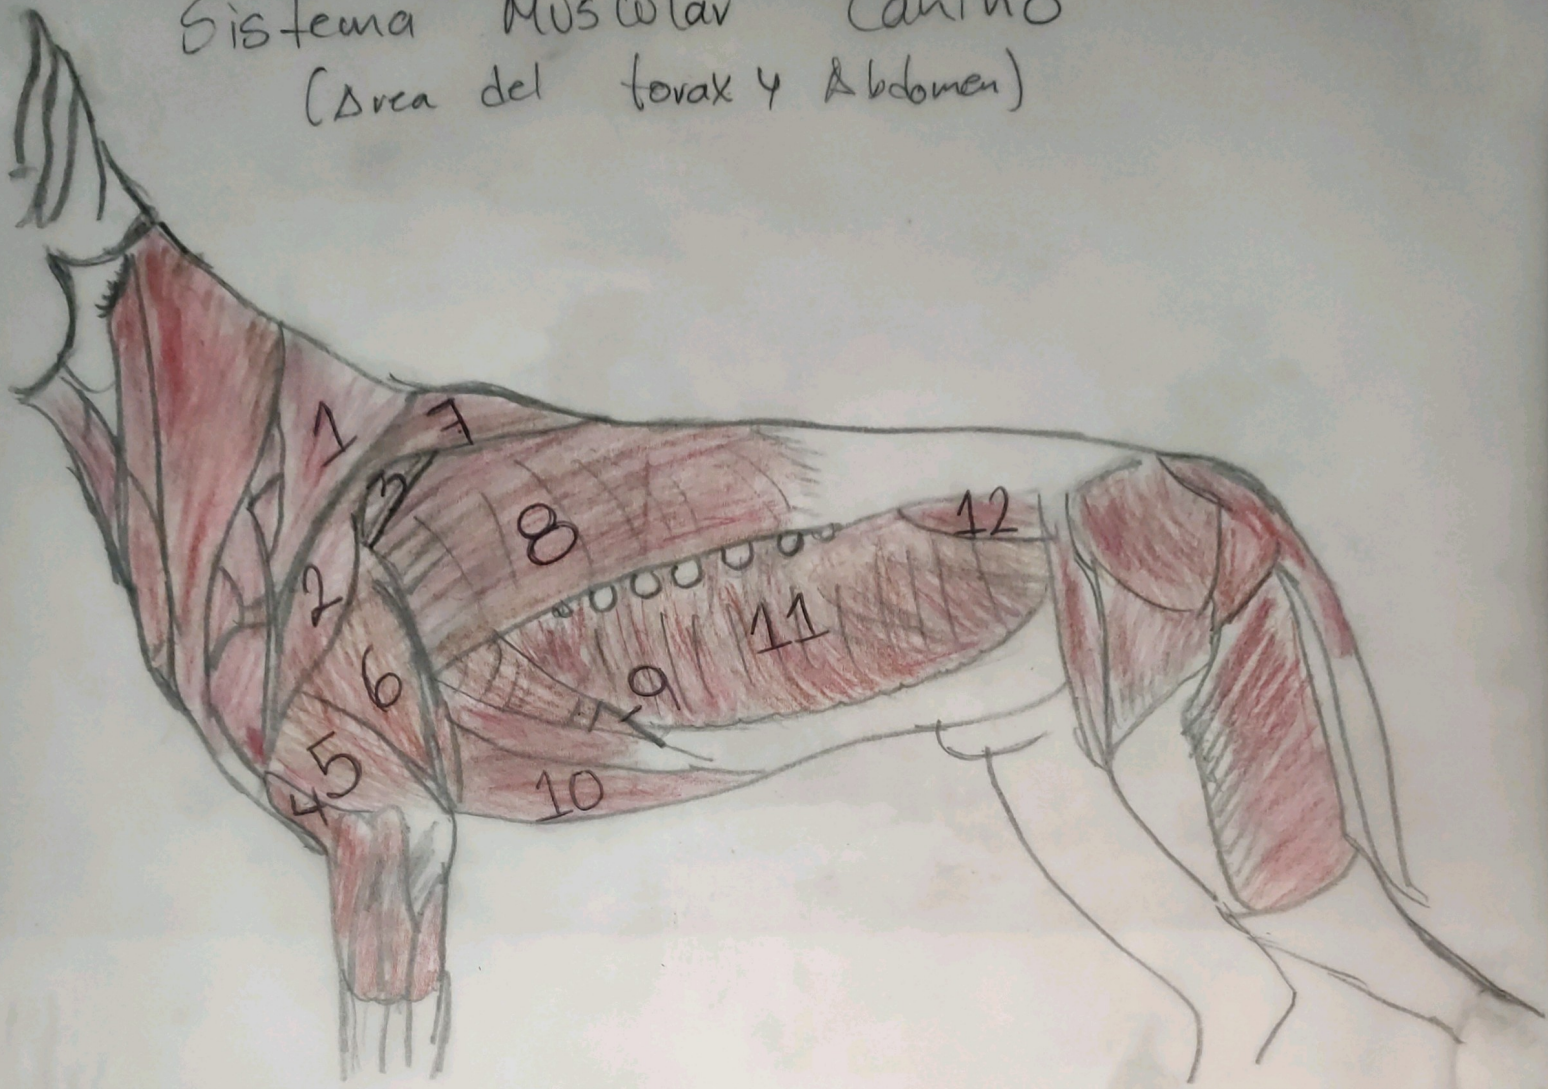 Sistema Muscular Canino
(Area del torax y Abdomen)
1
7
3
8
12
2
11
6
9
5
4
10